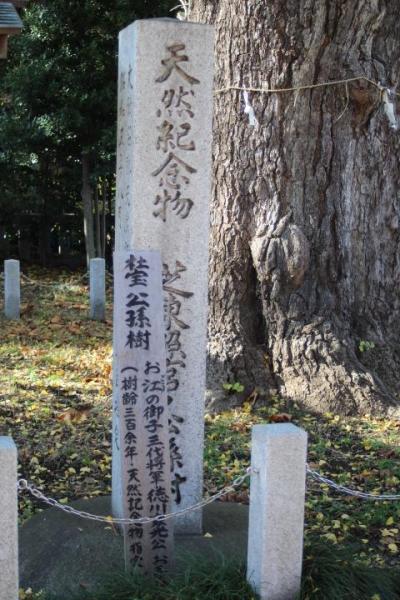 天然紀念物
芝東照宮ノ公孫樹
公孫樹
お江の御子三代将軍 徳川家光公 お
(樹齢三百余年・天然記念物指定